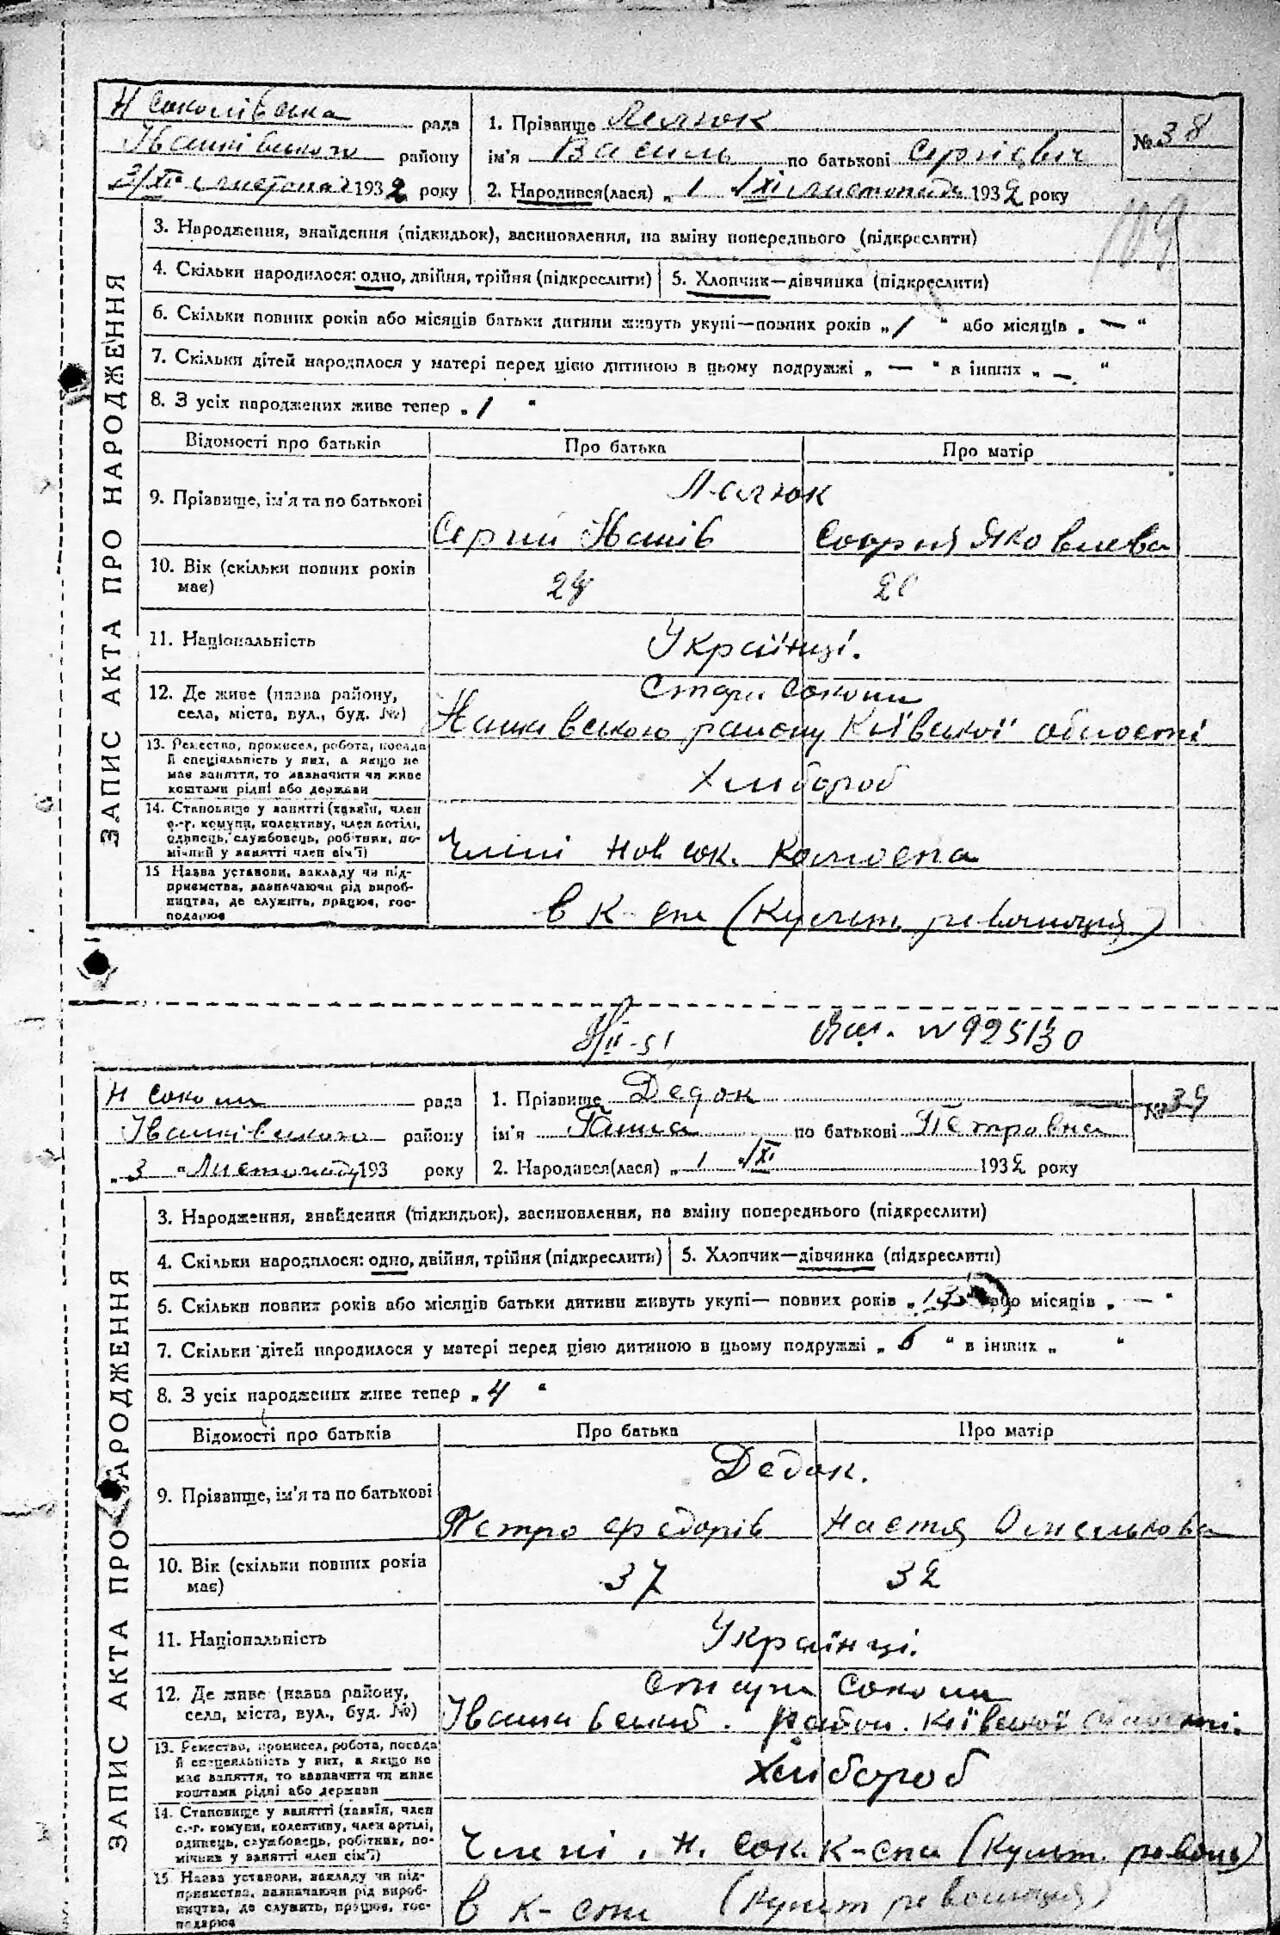 Н Соколівська рада
Іванківського району
3/XI листопада 1932 року
1. Прізвище Лелюк
ім'я Василь по батькові Сергієвіч
2. Народився(лася) „ 1 XI листопада 1932 року
№ 38
109
ЗАПИС АКТА ПРО НАРОДЖЕННЯ
3. Народження, знайдення (підкидьок), васиновлення, на вміну попереднього (підкреслити)
4. Скільки народилося: одно, двійня, трійня (підкреслити) 5. Хлопчик—дівчинка (підкреслити)
6. Скільки повних років або місяців батьки дитини живуть укупі—повних років „ 1 “ або місяців „ — “
7. Скільки дітей народилося у матері перед цією дитиною в цьому подружжі „ — “ в інших „ — “
8. З усіх народжених живе тепер „ 1 “
Відомості про батьків Про батька Про матір
9. Прізвище, ім'я та по батькові
Сергий Софія Яковлева
10. Вік (скільки повних років
має)
11. Національність Українці.
12. Де живе (назва району,
села, міста, вул., буд. №)
Стари Соколи
району Київської області
13. Ремество, промисел, робота, посада
й спеціяльність у них, а якщо не
має заняття, то зазначити чи живе
коштами рідні або держави
Хлибороб
14. Становище у занятті (хазяїн, член
с.-г. комуни, колективу, член артілі,
одинець, службовець, робітник, по-
мічний у занятті член сім'ї)
Члені Нов сок. Колгоспа
15 Назва установи, закладу чи під-
приємства, зазначаючи рід вироб-
ництва, де служить, працює, гос-
подарює
в К-спі (Культ. революція)
№ 925130
Н Соколи рада
Іванківського району
„ 3 “ Листопада 193 року
1. Прізвище Дедок
ім'я по батькові Петровна
2. Народився(лася) „ 1 XI 1932 року
№ 39
ЗАПИС АКТА ПРО НАРОДЖЕННЯ
3. Народження, знайдення (підкидьок), васиновлення, на вміну попереднього (підкреслити)
4. Скільки народилося: одно, двійня, трійня (підкреслить) 5. Хлопчик—дівчинка (підкреслити)
6. Скільки повних років або місяців батьки дитини живуть укупі— повних років „ 13 “ або місяців „ — “
7. Скільки дітей народилося у матері перед цією дитиною в цьому подружжі „ 6 “ в інших „ “
8. З усіх народжених живе тепер „ 4 “
Відомості про батьків Про батька Про матір
Дедок.
9. Прізвище, ім'я та по батькові
Петро Федорів Настя Омелькова
10. Вік (скільки повних років
має)
37 32
11. Національність Українці.
12. Де живе (назва району,
села, міста, вул., буд. №)
Стари Соколи
район. Київської области.
13. Ремество, промисел, робота, посада
й спеціяльність у них, а якщо не
має заняття, то зазначити чи живе
коштами рідні або держави
Хлибороб
14. Становище у занятті (хазяїн, член
с.-г. комуни, колективу, член артілі,
одинець, службовець, робітник, по-
мічник у занятті член сім'ї)
Члені. Н. Сок. К-спа (Культ. револь)
15. Назва установи, закладу чи під-
приємства, зазначаючи рід вироб-
ництва, де служить, працює, гос-
подарює
в К-спі (Культ революція)